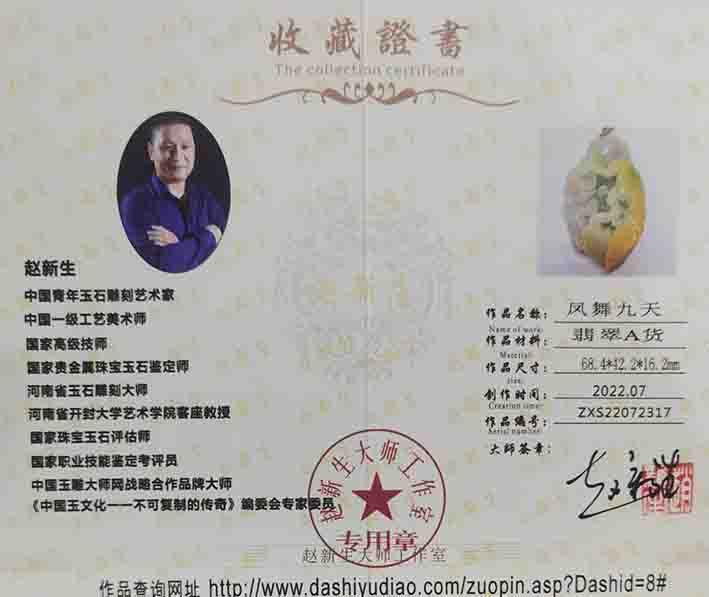 收藏證書
The collection certificate
赵新生
中国青年玉石雕刻艺术家
中国一级工艺美术师
国家高级技师
国家贵金属珠宝玉石鉴定师
河南省玉石雕刻大师
河南省开封大学艺术学院客座教授
国家珠宝玉石评估师
国家职业技能鉴定考评员
中国玉雕大师网战略合作品牌大师
《中国玉文化——不可复制的传奇》编委会专家委员
作品名称: 凤舞九天
Name of work:
作品材料: 翡翠A货
Material:
作品尺寸: 68.4*42.2*16.2mm
size:
创作时间: 2022.07
Creation time:
作品编号: ZXS22072317
Serial number:
大师签章:
赵新生大师工作室
专用章
赵新生大师工作室
作品查询网址 http://www.dashiyudiao.com/zuopin.asp?Dashid=8#